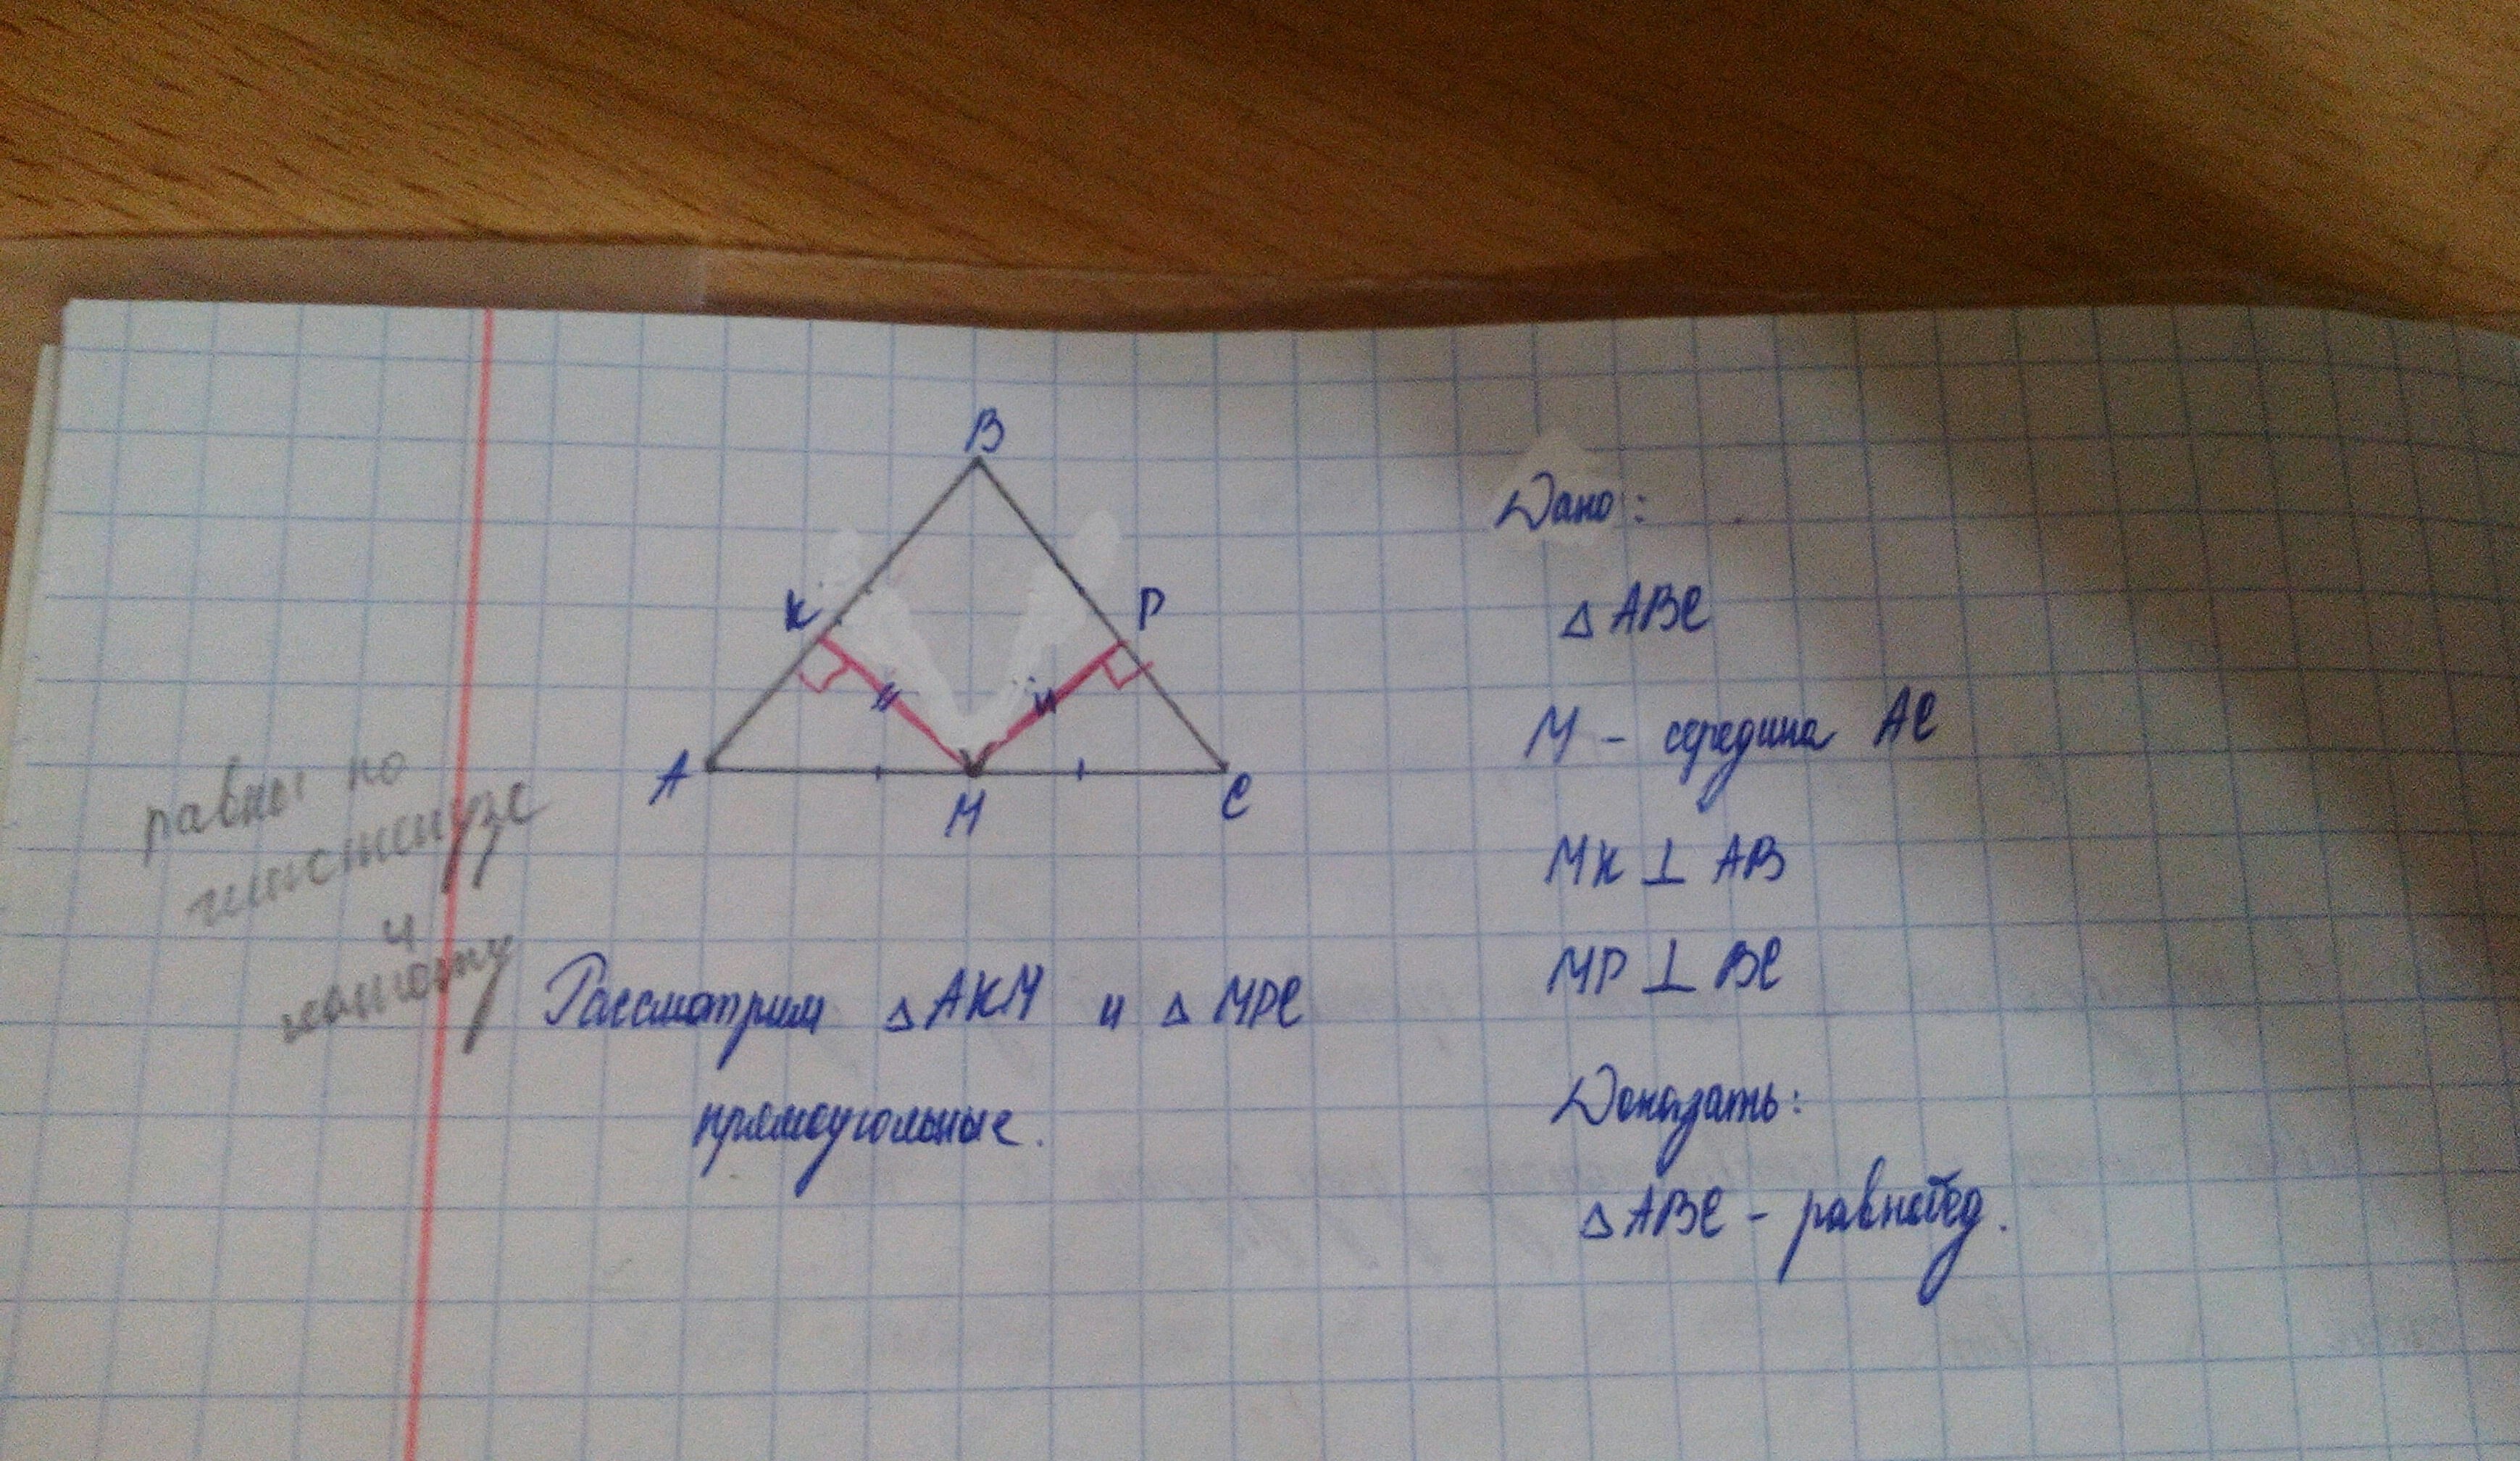 B
K
P
A
M
C
Дано:
△ ABC
M - середина AC
MK ⊥ AB
MP ⊥ BC
Доказать:
△ ABC - равнобед.
равны по
гипотенузе
и
катету
Рассмотрим △ AKM и △ MPC
прямоугольные.